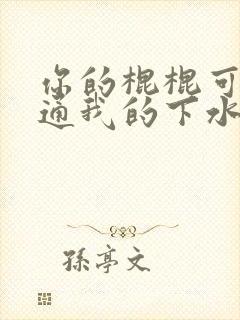 你的棍棍可
通我的下水
孫亭文